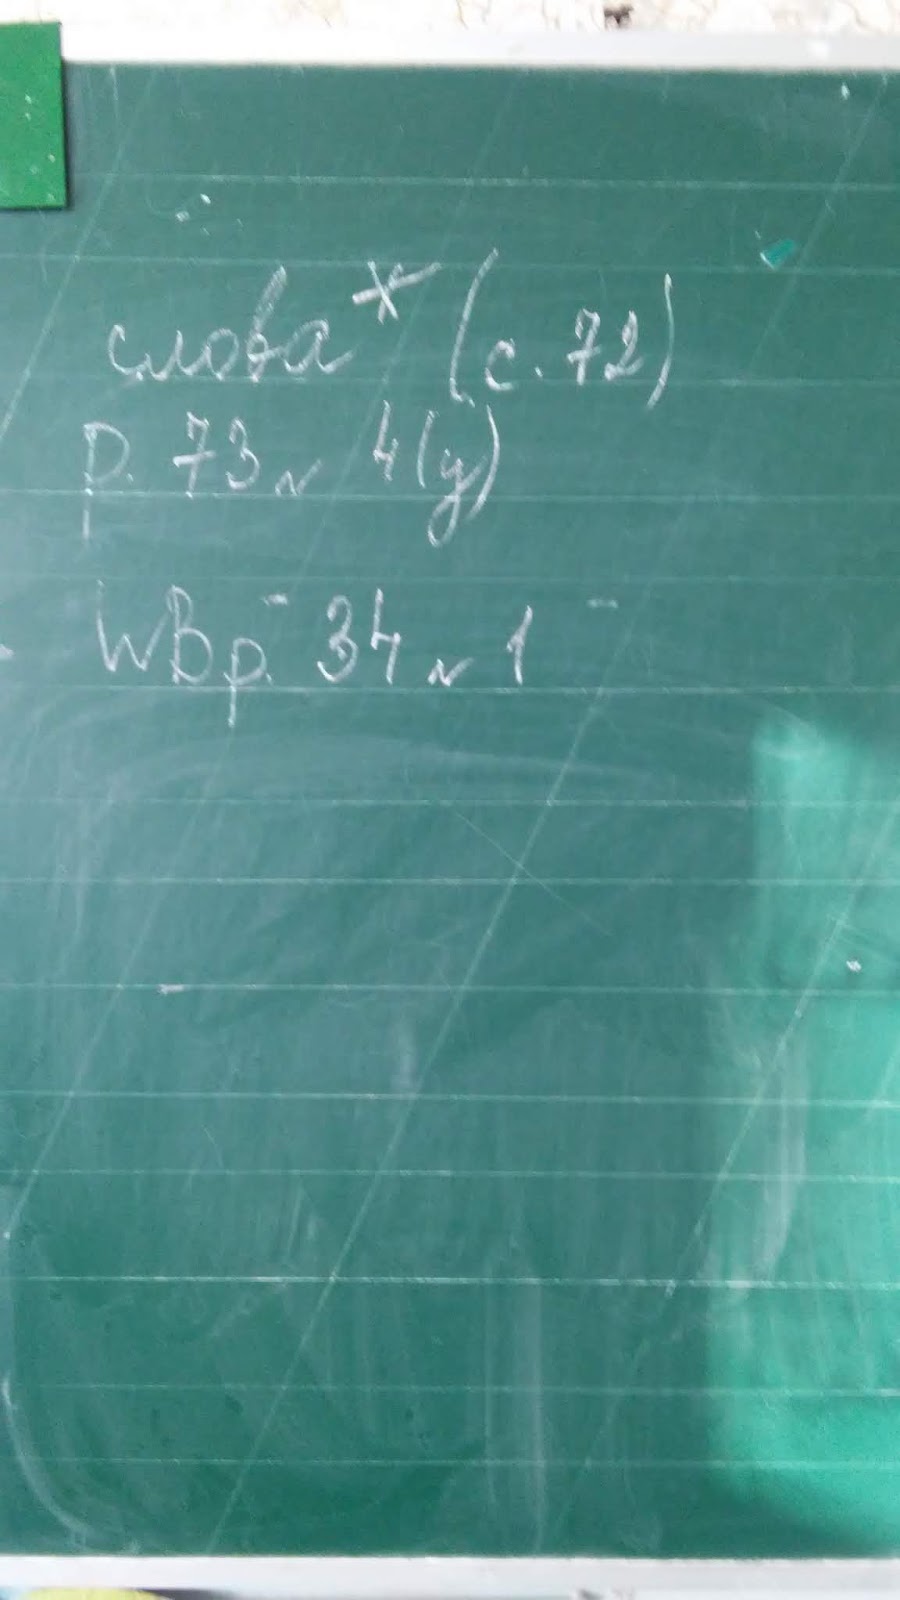 слова* (с. 72)
p. 73 N 4 (у)
WB p. 34 N 1